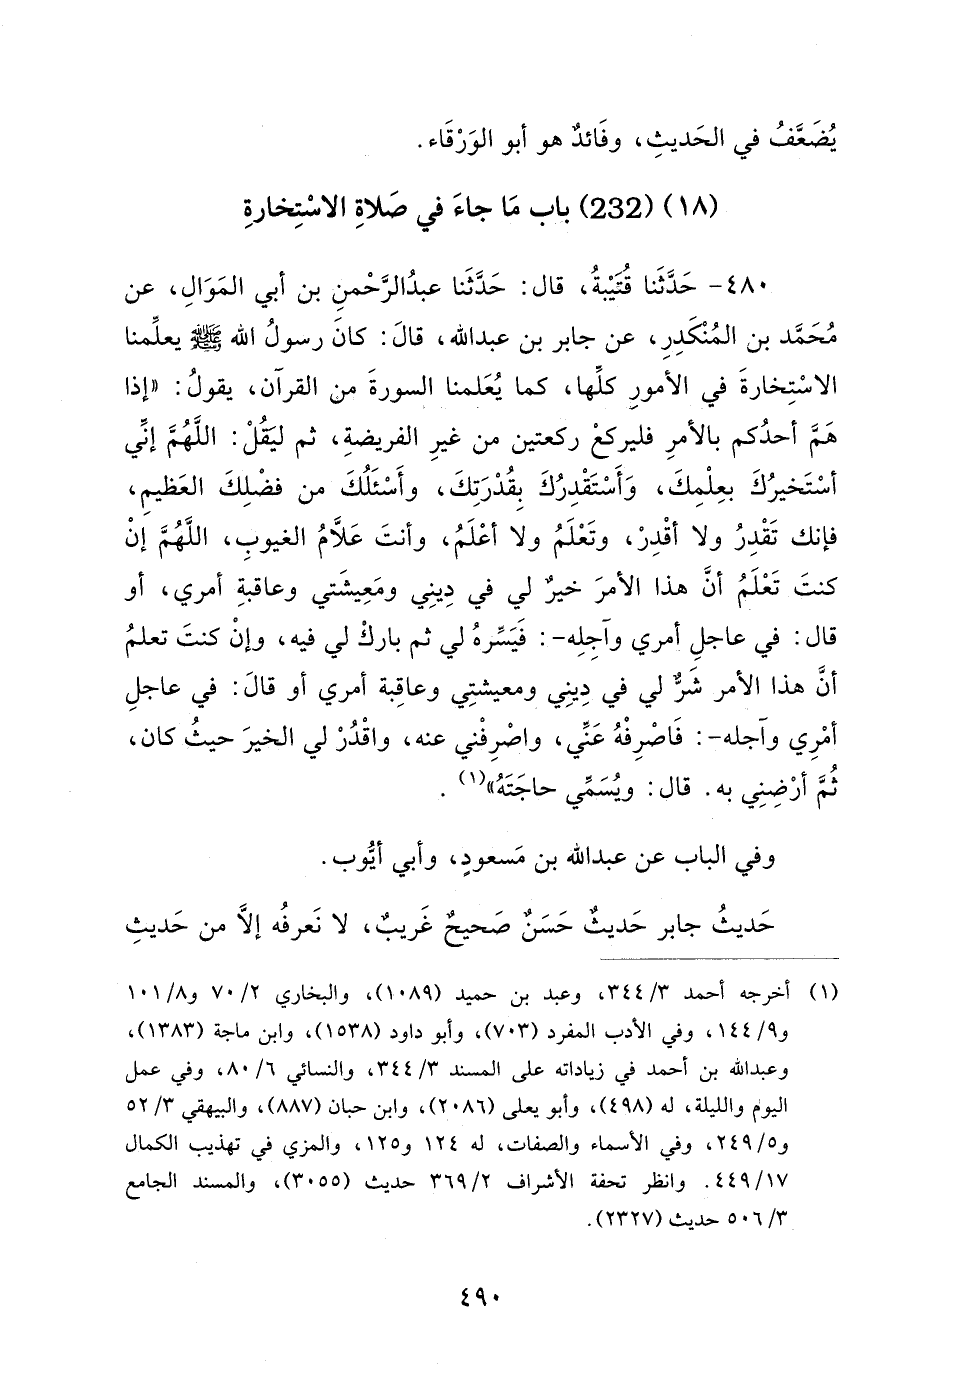 يُضَعَّفُ في الحَديثِ، وفَائدٌ هو أبو الوَرْقَاء.
(١٨) (232) باب مَا جاءَ في صَلاةِ الاسْتِخارةِ
٤٨٠- حَدَّثَنا قُتَيْبةُ، قال: حَدَّثَنا عبدُالرَّحْمنِ بن أبي المَوَالِ، عن
مُحَمَّد بن المُنْكَدِرِ، عن جابر بن عبدالله، قالَ: كانَ رسولُ الله ﷺ يعلِّمنا
الاسْتِخارةَ في الأمورِ كلِّها، كما يُعَلمنا السورةَ من القرآن، يقولُ: «إذا
هَمَّ أحدُكم بالأمرِ فليركعْ ركعتين من غيرِ الفريضةِ، ثم ليَقُلْ: اللَّهُمَّ إنِّي
أسْتَخيرُكَ بعِلْمِكَ، وَأَسْتَقْدِرُكَ بِقُدْرَتِكَ، وأَسْئَلُكَ من فضْلِكَ العَظيمِ،
فإنك تَقْدِرُ ولا أقْدِرْ، وتَعْلَمُ ولا أعْلَمُ، وأنتَ عَلاَّمُ الغيوبِ، اللَّهُمَّ إنْ
كنتَ تَعْلَمُ أنَّ هذا الأمرَ خيرٌ لي في دِيني ومَعِيشَتي وعاقبةِ أمري، أو
قال: في عاجلِ أمري وآجِلِه-: فَيَسِّرهُ لي ثم باركْ لي فيه، وإنْ كنتَ تعلمُ
أنَّ هذا الأمر شَرٌّ لي في دِينِي ومعيشتِي وعاقِبة أمري أو قالَ: في عاجلِ
أمْرِي وآجله-: فَاصْرِفْهُ عَنِّي، واصْرِفْني عنه، واقْدُرْ لي الخيرَ حيثُ كان،
ثُمَّ أرْضِنِي به. قال: ويُسَمِّي حاجَتَهُ»(١).
وفي الباب عن عبدالله بن مَسعودٍ، وأبي أيُّوب.
حَديثُ جابر حَديثٌ حَسَنٌ صَحيحٌ غَريبٌ، لا نَعرفُه إلاَّ من حَديثِ
(١) أخرجه أحمد ٣/ ٣٤٤، وعبد بن حميد (١٠٨٩)، والبخاري ٢/ ٧٠ و٨/ ١٠١
و٩/ ١٤٤، وفي الأدب المفرد (٧٠٣)، وأبو داود (١٥٣٨)، وابن ماجة (١٣٨٣)،
وعبدالله بن أحمد في زياداته على المسند ٣/ ٣٤٤، والنسائي ٦/ ٨٠، وفي عمل
اليوم والليلة، له (٤٩٨)، وأبو يعلى (٢٠٨٦)، وابن حبان (٨٨٧)، والبيهقي ٣/ ٥٢
و٥/ ٢٤٩، وفي الأسماء والصفات، له ١٢٤ و١٢٥، والمزي في تهذيب الكمال
١٧/ ٤٤٩. وانظر تحفة الأشراف ٢/ ٣٦٩ حديث (٣٠٥٥)، والمسند الجامع
٣/ ٥٠٦ حديث (٢٣٢٧).
٤٩٠